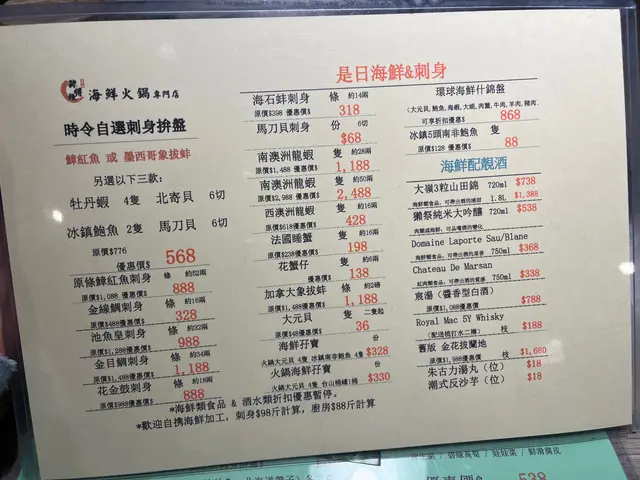 海鮮火鍋專門店
時令自選刺身拚盤
鱆紅魚 或 墨西哥象拔蚌
另選以下三款:
牡丹蝦 4隻 北寄貝 6切
冰鎮鮑魚 2隻 馬刀貝 6切
原價$776
優惠價$ 568
原條鱆紅魚刺身 條 約62兩
原價$1,088 優惠價$ 888
金線鯛刺身 條 約16兩
原價$488優惠價$ 328
池魚皇刺身 條 約32兩
原價$1,288優惠價$ 988
金目鯛刺身 條 約34兩
原價$1,488優惠價$ 1,188
花金鼓刺身 條 約18兩
原價$988優惠價$ 888
是日海鮮&刺身
海石蚌刺身 條 約14兩
原價$398 優惠價$ 318
馬刀貝刺身 份 6切
$68
南澳洲龍蝦 隻 約28兩
原價$1,488 優惠價$ 1,188
南澳洲龍蝦 隻 約50兩
原價$2,988 優惠價$ 2,488
西澳洲龍蝦 隻 約16兩
原價$518優惠價$ 428
法國睡蟹 隻 約16兩
原價$238優惠價$ 198
花蟹仔 隻 約6兩
優惠價$ 138
加拿大象拔蚌 條 約2磅
原價$1,488優惠價$ 1,188
大元貝 隻 二隻起
原價$48優惠價$ 36
海鮮孖寶 份
火鍋大元貝 4隻 冰鎮南非鮑魚 4隻 $328
火鍋海鮮孖寶 份
火鍋大元貝 4隻 台山桶蠔1桶 $330
環球海鮮什錦盤
(大元貝, 鮑魚, 海蝦, 大蜆, 肉蟹, 牛肉, 羊肉, 豬肉
可享折扣優惠$ 868
冰鎮5頭南非鮑魚 隻
原價$128 優惠價$ 88
海鮮配靚酒
大嶺3粒山田錦 720ml $738
1.8L $1,388
獺祭純米大吟釀 720ml $538
Domaine Laporte Sau/Blane
750ml $368
Chateau De Marsan
750ml $338
宸湯 (醬香型白酒)
原價$1,088優惠價 $788
Royal Mac 5Y Whisky
(配送梳打水二樽) 枝 $188
舊版 金花拔蘭地
原價$1,988優惠價 枝 $1,680
朱古力湯丸 (位) $18
潮式反沙芋 (位) $18
*海鮮類食品 & 酒水類折扣優惠暫停。
*歡迎自携海鮮加工, 刺身$98斤計算, 廚房$88斤計算